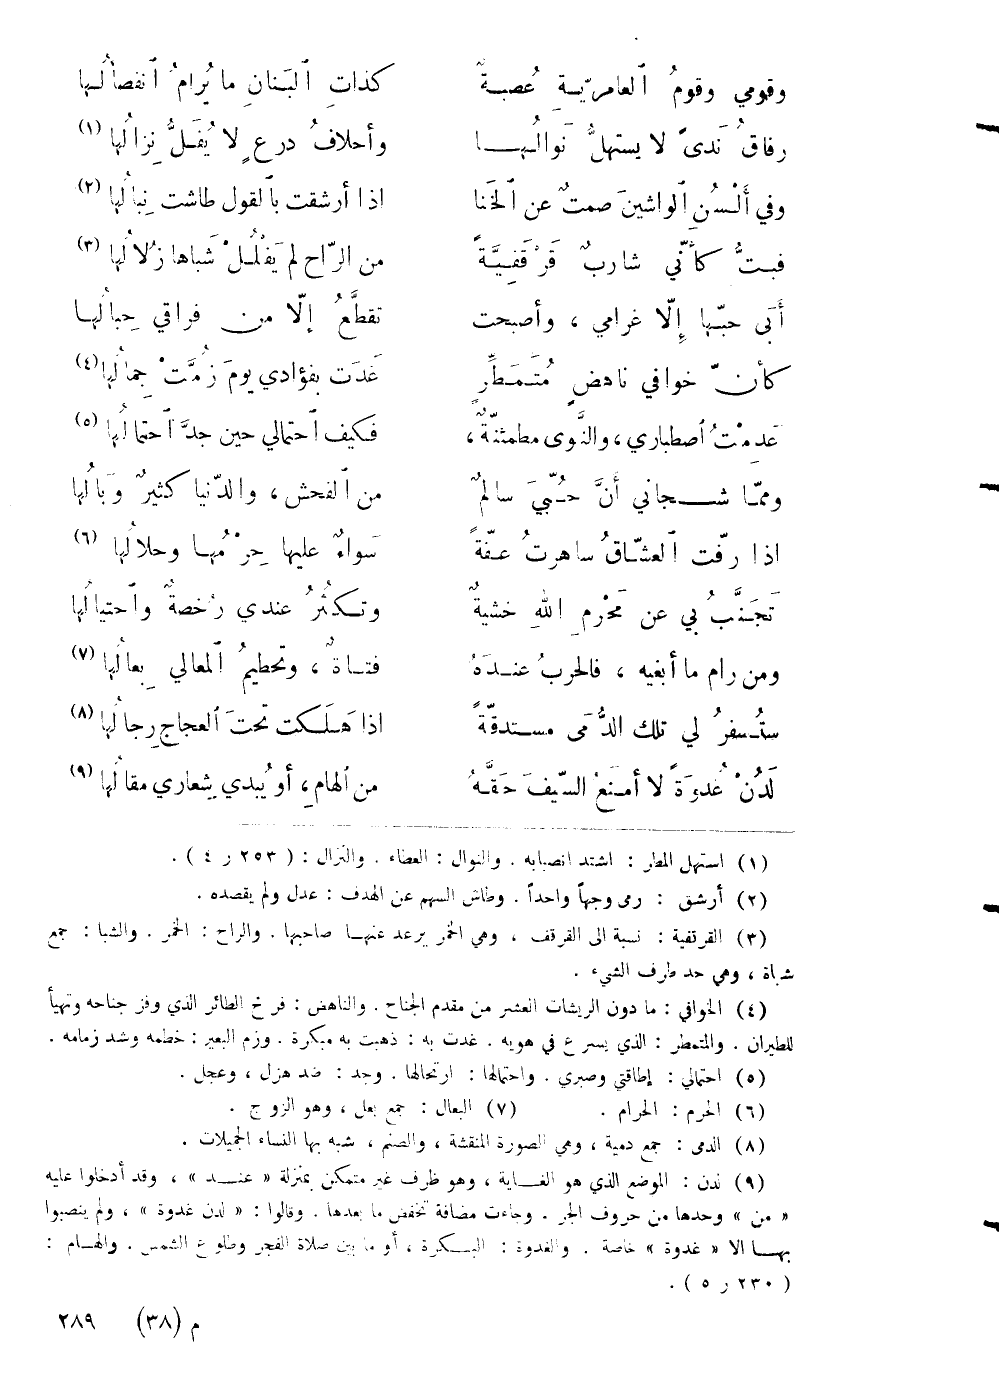 وقومي وقومُ ٱلعامريّةِ عُصبةٌ كذاتِ ٱلبَنانِ ما يُرامُ ٱنفصالُها
رفاقُ نَدىً لا يستهلُّ نَوالُها وأحلافُ درعٍ لا يُفَلُّ نِزالُها (١)
وفي أَلْسُنِ ٱلواشينَ صمتٌ عن ٱلخَنا اذا أرشقت بٱلقول طاشت نِبالُها (٢)
فبتُّ كأنّي شاربٌ قَرْقَفِيَّةً من الرّاح لم يَفْلُلْ شَباها زُلالُها (٣)
أَبى حبّها إِلّا غرامي ، وأصبحت تقطَّعُ إلّا من فراقي حِبالُها
كأنّ خوافي ناهضٍ مُتَمَطِّرٍ غَدَت بفؤادي يومَ زُمَّتْ جِمالُها (٤)
عَدِمْتُ ٱصطباري ، والنَّوى مطمئنّةٌ ، فكيف ٱحتمالي حين جدَّ ٱحتمالُها (٥)
وممّا شجاني أنَّ حُبّيَ سالمٌ من ٱلفحش ، والدّنيا كثيرٌ وَبالُها
اذا رفّت ٱلعشّاقُ ساهرتُ عفّةً سَواءٌ عليها حِرْمُها وحلالُها (٦)
تَجَنَّبُ بي عن مَحْرمِ اللهِ خشيةٌ وتكثُرُ عندي رُخصةٌ وٱحتيالُها
ومن رام ما أبغيه ، فالحربُ عندَهُ فتاةٌ ، وتحطيمُ ٱلمعالي بِعالُها (٧)
ستُسفرُ لي تلك الدُّمى مستدقّةً اذا هَلَكت تحتَ ٱلعجاج رِجالُها (٨)
لَدُنْ غُدوَةً لا أمنَعُ السّيفَ حقَّهُ من ٱلهامِ ، أو يُبدي شِعاري مقالُها (٩)
(١) استهل المطر : اشتد انصبابه . والنوال : العطاء . والنزال : ( ٢٥٣ ر ٤ ) .
(٢) أرشق : رمى وجهاً واحداً . وطاش السهم عن الهدف : عدل ولم يقصده .
(٣) القرقفية : نسبة الى القرقف ، وهي الخمر يرعد عنها صاحبها . والراح : الخمر . والشبا : جمع
شباة ، وهي حد طرف الشيء .
(٤) الخوافي : ما دون الريشات العشر من مقدم الجناح . والناهض : فرخ الطائر الذي وفر جناحه وتهيأ
للطيران . والمتمطر : الذي يسرع في هويه . غدت به : ذهبت به مبكرة . وزم البعير : خطمه وشد زمامه .
(٥) احتمالي : إطاقتي وصبري . واحتمالها : ارتحالها . وجد : ضد هزل ، وعجل .
(٦) الحرم : الحرام . (٧) البعال : جمع بعل ، وهو الزوج .
(٨) الدمى : جمع دمية ، وهي الصورة المنقشة ، والصنم ، شبه بها النساء الجميلات .
(٩) لدن : الموضع الذي هو الغاية ، وهو ظرف غير متمكن بمنزلة « عند » ، وقد أدخلوا عليه
« من » وحدها من حروف الجر . وجاءت مضافة تخفض ما بعدها . وقالوا : « لدن غدوة » ، ولم ينصبوا
بها الا « غدوة » خاصة . والغدوة : البكرة ، أو ما بين صلاة الفجر وطلوع الشمس . والهام :
( ٢٣٠ ر ٥ ) .
م (٣٨) ٢٨٩